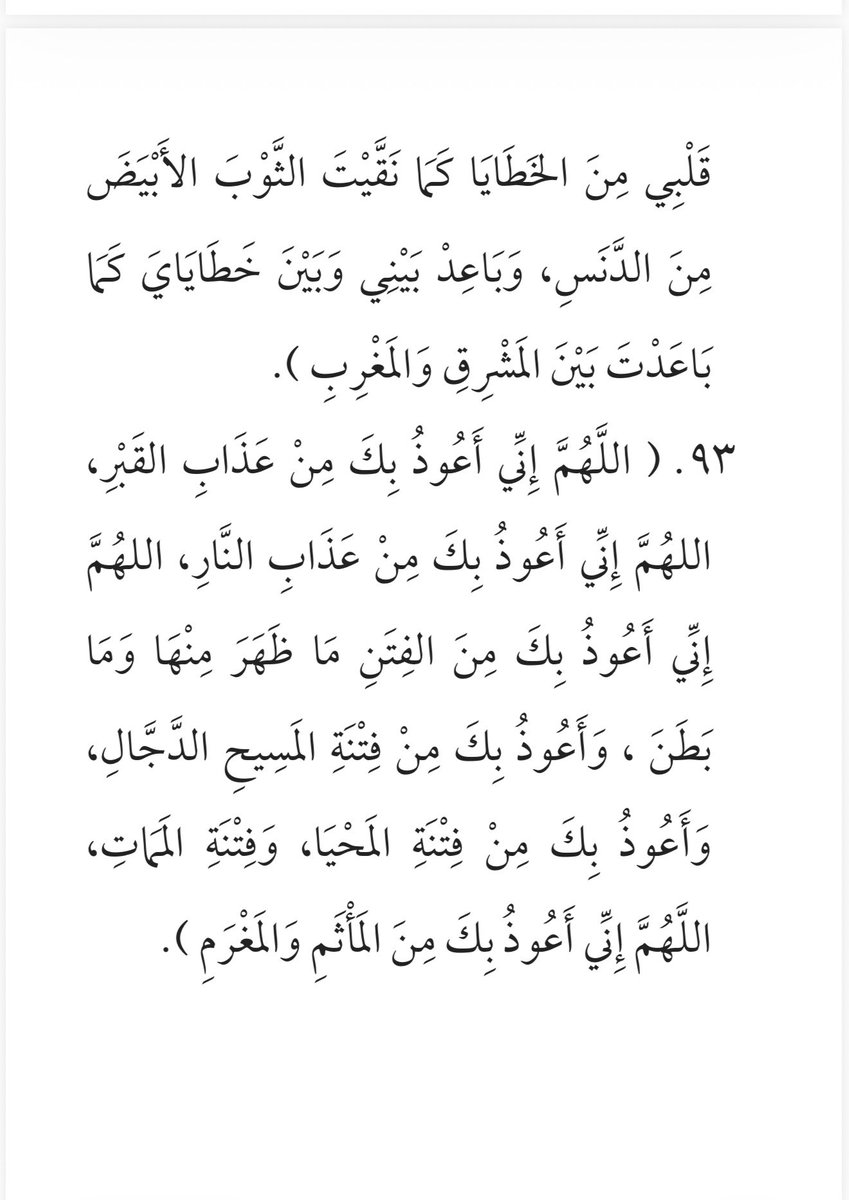 قَلْبِي مِنَ الخَطَايَا كَمَا نَقَّيْتَ الثَّوْبَ الأَبْيَضَ
مِنَ الدَّنَسِ، وَبَاعِدْ بَيْنِي وَبَيْنَ خَطَايَايَ كَمَا
بَاعَدْتَ بَيْنَ المَشْرِقِ وَالمَغْرِبِ ).
٩٣. ( اللَّهُمَّ إِنِّي أَعُوذُ بِكَ مِنْ عَذَابِ القَبْرِ،
اللهُمَّ إِنِّي أَعُوذُ بِكَ مِنْ عَذَابِ النَّارِ، اللهُمَّ
إِنِّي أَعُوذُ بِكَ مِنَ الفِتَنِ مَا ظَهَرَ مِنْهَا وَمَا
بَطَنَ ، وَأَعُوذُ بِكَ مِنْ فِتْنَةِ المَسِيحِ الدَّجَّالِ،
وَأَعُوذُ بِكَ مِنْ فِتْنَةِ المَحْيَا، وَفِتْنَةِ المَمَاتِ،
اللَّهُمَّ إِنِّي أَعُوذُ بِكَ مِنَ المَأْثَمِ وَالمَغْرَمِ ).